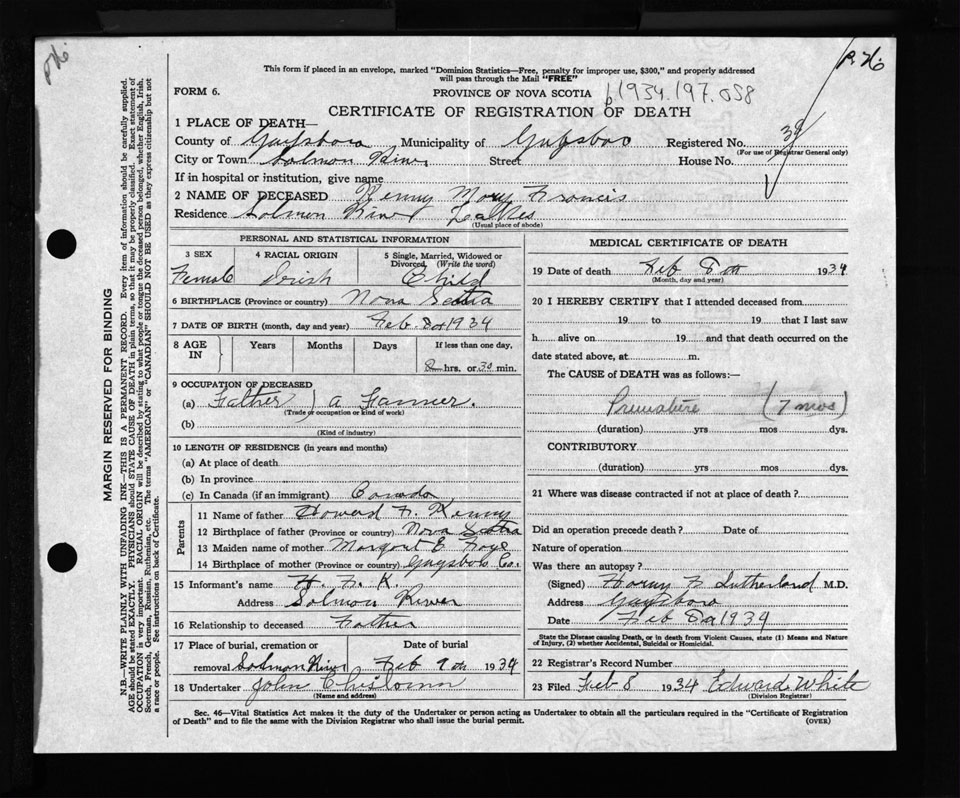 P. H.
P. H.
This form if placed in an envelope, marked "Dominion Statistics—Free, penalty for improper use, $300," and properly addressed
will pass through the Mail "FREE"
FORM 6.
PROVINCE OF NOVA SCOTIA
1934.197.058
CERTIFICATE OF REGISTRATION OF DEATH
1 PLACE OF DEATH—
County of Guysboro Municipality of Guysboro Registered No.
(For use of Registrar General only)
City or Town Salmon River Street House No.
If in hospital or institution, give name
2 NAME OF DECEASED Kenny Mary Francis
Residence Salmon River Lakes
(Usual place of abode)
PERSONAL AND STATISTICAL INFORMATION
3 SEX 4 RACIAL ORIGIN 5 Single, Married, Widowed or
Divorced. (Write the word)
Female Irish Child
6 BIRTHPLACE (Province or country) Nova Scotia
7 DATE OF BIRTH (month, day and year) Feb. 8 1934
8 AGE IN Years Months Days If less than one day,
hrs. or 30 min.
9 OCCUPATION OF DECEASED
(a) Father) a Farmer.
(Trade or occupation or kind of work)
(b)
(Kind of industry)
10 LENGTH OF RESIDENCE (in years and months)
(a) At place of death
(b) In province
(c) In Canada (if an immigrant) Canada
Parents
11 Name of father Howard F. Kenny
12 Birthplace of father (Province or country) Nova Scotia
13 Maiden name of mother Margaret E
14 Birthplace of mother (Province or country) Guysboro Co.
15 Informant's name H. F. K.
Address Salmon River
16 Relationship to deceased Father
17 Place of burial, cremation or Date of burial
removal Salmon River Feb 9 th 1934
18 Undertaker John Chisholm
(Name and address)
MEDICAL CERTIFICATE OF DEATH
19 Date of death Feb 8 th 1934
(Month, day and year)
20 I HEREBY CERTIFY that I attended deceased from
19 to 19 that I last saw
h alive on 19 and that death occurred on the
date stated above, at m.
The CAUSE of DEATH was as follows:—
Premature (7 mos)
(duration) yrs mos dys.
CONTRIBUTORY
(duration) yrs mos dys.
21 Where was disease contracted if not at place of death?
Did an operation precede death? Date of
Nature of operation
Was there an autopsy?
(Signed) F Sutherland M.D.
Address Guysboro
Date Feb 1934
State the Disease causing Death, or in death from Violent Causes, state (1) Means and Nature
of Injury, (2) whether Accidental, Suicidal or Homicidal.
22 Registrar's Record Number
23 Filed Feb 8 1934 Edward White
(Division Registrar)
Sec. 46—Vital Statistics Act makes it the duty of the Undertaker or person acting as Undertaker to obtain all the particulars required in the "Certificate of Registration
of Death" and to file the same with the Division Registrar who shall issue the burial permit.
(OVER)
MARGIN RESERVED FOR BINDING
N.B.—WRITE PLAINLY WITH UNFADING INK—THIS IS A PERMANENT RECORD. Every item of information should be carefully supplied.
AGE should be stated EXACTLY. PHYSICIANS should STATE CAUSE OF DEATH in plain terms, so that it may be properly classified. Exact statement of
OCCUPATION is very important. RACIAL ORIGIN will be described by stating to what people or tongue the deceased person belonged, whether English, Irish,
Scotch, French, German, Russian, Ruthenian, etc. The terms "AMERICAN" or "CANADIAN" SHOULD NOT BE USED as they express citizenship but not
a race or people. See instructions on back of Certificate.